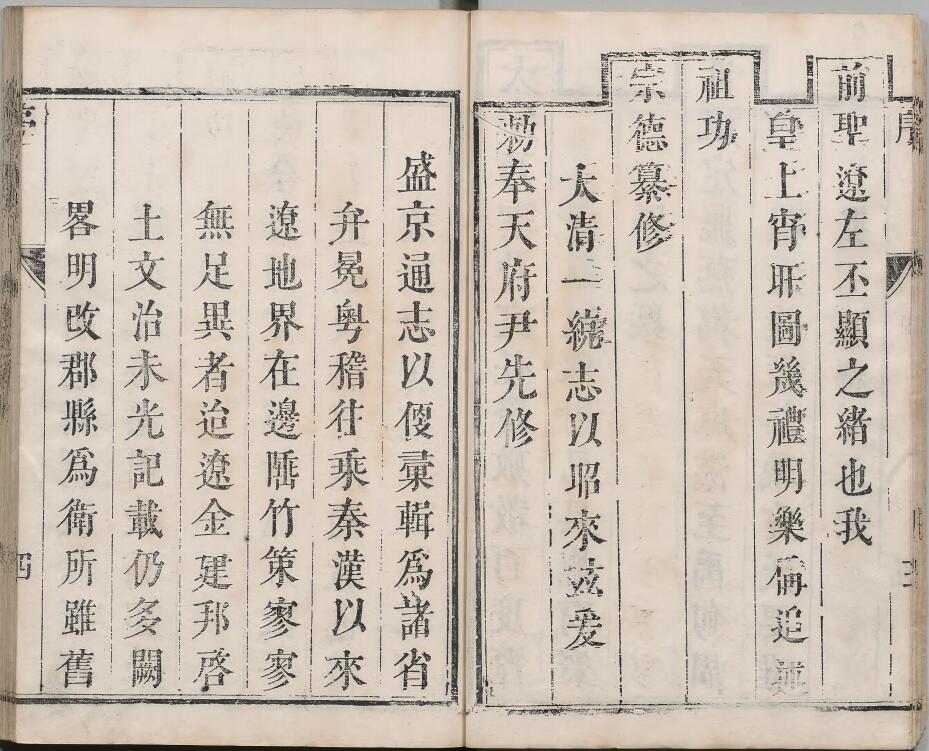 前聖遼左丕顯之緒也我
皇上宵旰圖幾禮明樂備追
祖功
宗德纂修
大清一統志以昭來玆爰
勑奉天府尹先修
盛京通志以便彙輯爲諸省
弁冕粵稽往乘秦漢以來
遼地界在邊陲竹策寥寥
無足異者迨遼金建邦啓
土文治未光記載仍多闕
畧明改郡縣爲衛所雖舊
四